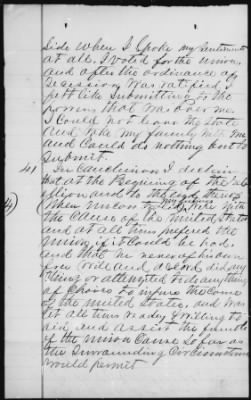 side when I spoke my sentiments
at all. I voted for the union,
and after the ordinance of
Secession was ratified I
felt like submitting to the
powers that was over me.
I could not leave the State
and take my family with me
and could do nothing but to
submit.
41 In conclusion I declare
that at the Begining of the Re
bellion and to
the cause of the United States
and at all times prefered the
Union, if it could be had,
and that he never of his own
free will and accord did any
thing or attempted to do anything
of choice to injure the cause
of the united States, and was
at all times ready & willing to
aid and assist the friends
of the Union Cause so far as
the surrounding circumstances
would permit